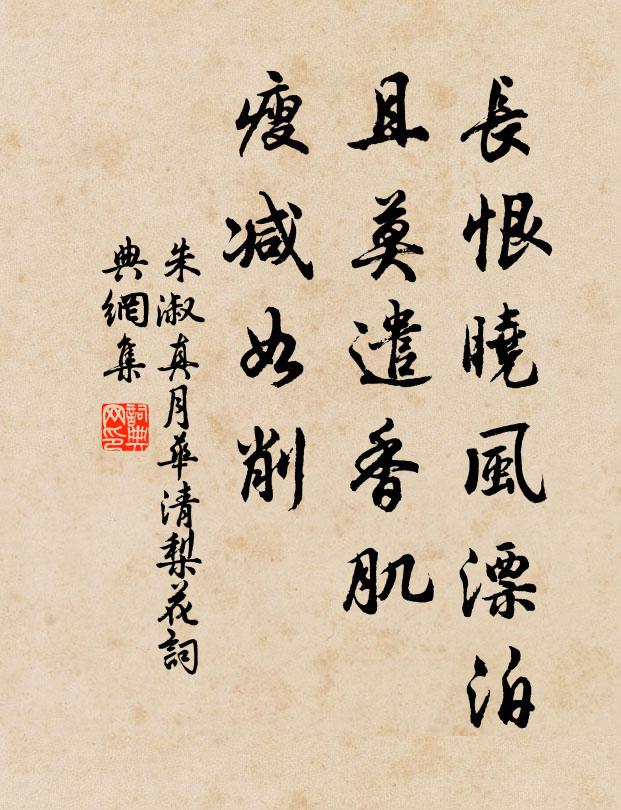 長恨曉風漂泊
且莫遣香肌
瘦減如削
朱淑真月華清梨花詞
典網集
詞典网印